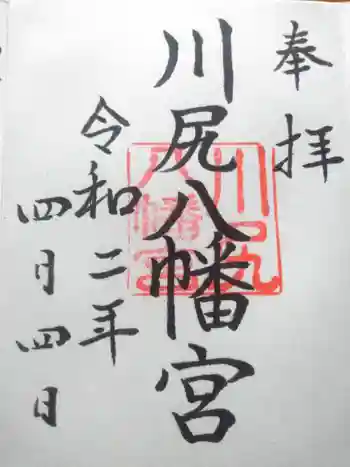 奉拝
川尻八幡宮
令和二年
四月四日
川尻
八幡宮